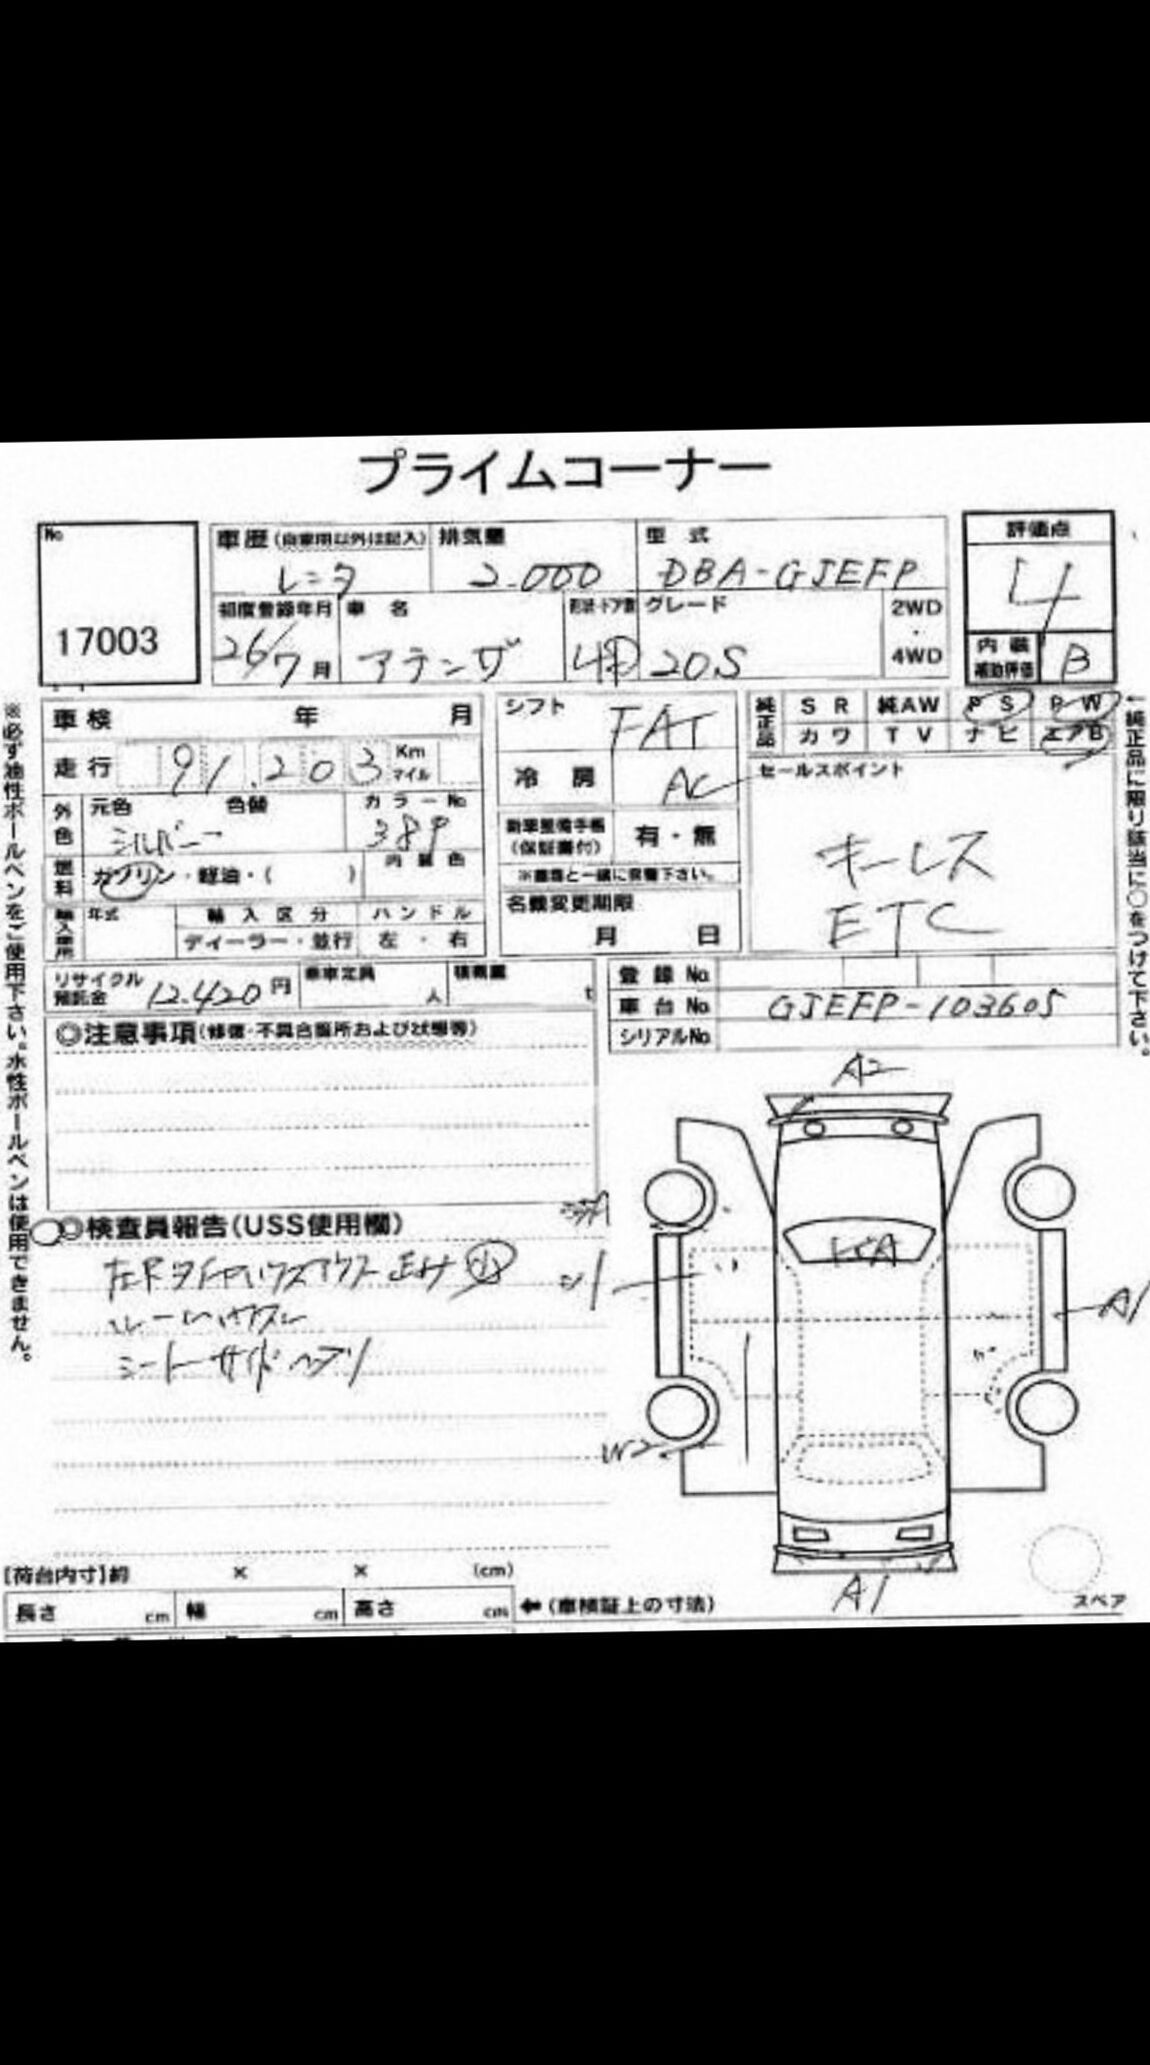 プライムコーナー
No
17003
車歴(自家用以外は記入)
レンタ
排気量
2.000
型式
DBA-GJEFP
評価点
4
初度登録年月
26/7月
車名
アテンザ
形状・ドア数
4D
グレード
20S
2WD
・
4WD
内装補助評価
B
車検 年 月
走行
91.203
Km
マイル
外色
元色
シルバー
色替
カラーNo
38P
燃料
ガソリン・軽油・( )
内装色
輸入車用
年式
輸入区分
ディーラー・並行
ハンドル
左・右
シフト
FAT
冷房
AC
新車整備手帳(保証書付)
有・無
※書類と一緒に保管下さい。
名義変更期限
月 日
純正品
SR
純AW
PS
PW
カワ
TV
ナビ
エアB
セールスポイント
キーレス
ETC
リサイクル預託金
12.420円
乗車定員
人
積載量
t
登録No.
車台No.
GJEFP-103605
シリアルNo.
◎注意事項(修復・不具合箇所および状態等)
◎検査員報告(USS使用欄)
シートサイドヘコリ
A2
A1
W2
A1
スペア
[荷台内寸]約 × × (cm)
長さ cm
幅 cm
高さ cm
(車検証上の寸法)
※必ず油性ボールペンをご使用下さい。水性ボールペンは使用できません。
純正品に限り該当に○をつけて下さい。